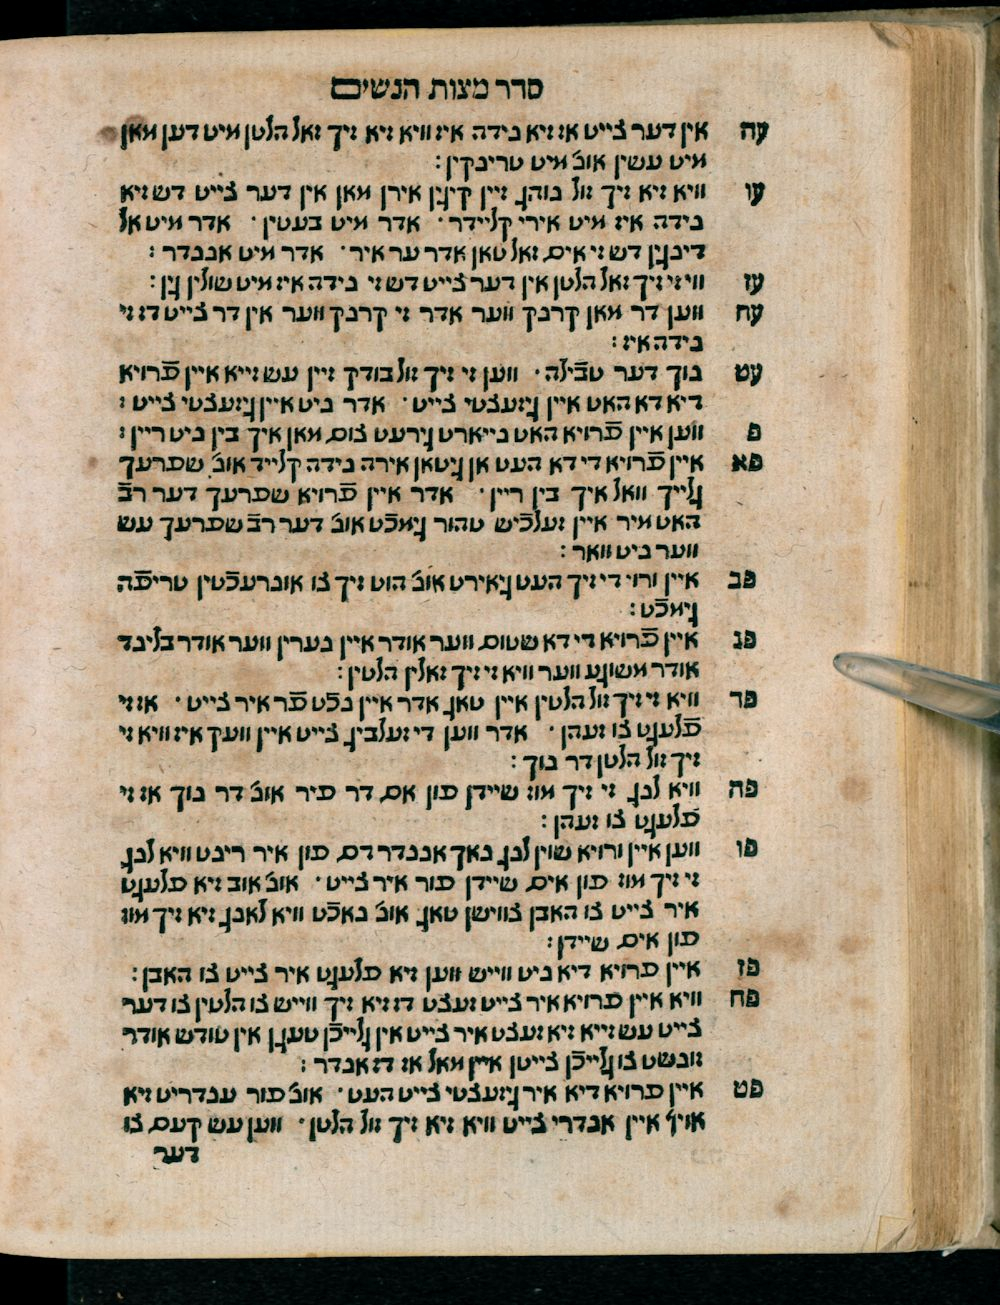 סדר מצות הנשים
עה אין דער צייט אז זיא נידה איז וויא זיא זיך זאל הלטן מיט דען מאן
מיט עשין אונ' מיט טרינקין :
עו וויא זיא זיך זול נוהנ' זיין קיגין אירן מאן אין דער צייט דש זיא
נידה איז מיט אירי קליידר · אדר מיט בעטין · אדר מיט אל
דינגין דש זי אים זאל טאן אדר ער איר · אדר מיט אננדר :
עז ווי זי זיך זאל הלטן אין דער צייט דש זי נידה איז מיט שולין גין :
עח ווען דר מאן קרנק ווער אדר זי קרנק ווער אין דר צייט דז זי
נידה איז :
עט נוך דער טבֿילה · ווען זי זיך זול בודך זיין עש זייא איין פֿרויא
דיא דא האט איין גיזעצטי צייט · אדר ניט איין גיזעצטי צייט :
פ ווען איין פֿרויא האט נייארט גירעט צום מאן איך בין ניט ריין :
פא איין פֿרויא די דא העט אן גיטאן אירה נידה קלייד אונ' שפרעך
גלייך וואל איך בין ריין · אדר איין פֿרויא שפרעך דער רבֿ
האט מיר איין זעלכֿיש טהור גימכֿט אונ' דער רבֿ שפרעך עש
ווער ניט וואר :
פב איין ורוי די זיך העט גיאירט אונ' הוט זיך צו אונרעכֿטין טריפֿה
גימכֿט :
פג איין פֿרויא די דא שטום ווער אודר איין נערין ווער אודר בלינד
אודר משוגע ווער וויא זי זיך זאלין הלטין :
פד וויא זי זיך זול הלטין איין טאג אדר איין נכֿט פֿר איר צייט · אז זי
פֿלעגט צו זעהן · אדר ווען די זעלביג צייט איין וועק איז וויא זי
זיך זול הלטן דר נוך :
פה וויא לנג זי זיך מוז שיידן פון אם דר פיר אונ' דר נוך אז זי
פֿלעגט צו זעהן :
פו ווען איין ורויא שוין לנג נאך אננדר דם פון איר רינט וויא לנג
זי זיך מוז פון אים שיידן פור איר צייט · אונ' אוב זיא פלעגט
איר צייט צו האבן צווישן טאג אונ' נאכֿט וויא לאנג זיא זיך מוז
פון אים שיידן :
פז איין פרויא דיא ניט ווייש ווען זיא פלעגט איר צייט צו האבן :
פח וויא איין פרויא איר צייט זעצט דז זיא זיך ווייש צו הלטין צו דער
צייט עש זייא זיא זעצט איר צייט אין גלייכֿן טעגן אין טודש אודר
זונשט צו גלייכֿן צייטן איין מאל אז דז אנדר :
פט איין פרויא דיא איר גיזעצטי צייט העט · אונ' פור ענדריט זיא
אויף איין אנדרי צייט וויא זיא זיך זול הלטן · ווען עש קעם צו
דער